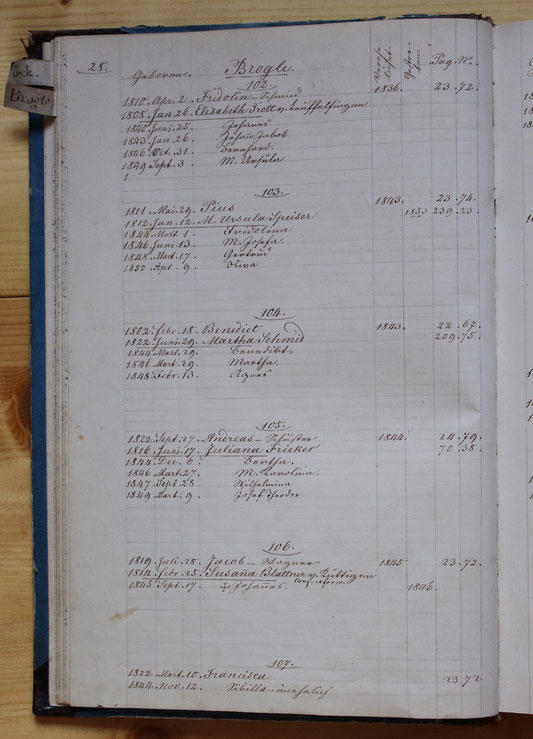 Beck.
Brogle
28. Geboren. Brogle. Pag. No.
102.
1810. Apr. 2. Fridolin – Schmied 1836. 23. 72.
1808. Jan. 26. Elisabeth Trott v.
1840. Juni. 25. Johanes
1843. Jan. 26. Johañ Jakob
1846. Oct. 31. Bernhard.
1849. Sept. 3. M. Ursula
103.
1811. Mai. 29. Pius 1843. 23. 74.
1812. Jan. 12. M. Ursula Speiser 1853 239. 23.
1844. Mart. 1. Fridolina
1846. Juni. 13. M. Josefa.
1848. Mart. 17. Gertrud
1850. Apr. 9. Oliva
104.
1802. febr. 18. Benedict 1843. 22. 67.
1822. Juni. 29. Martha Schmid 209. 75.
1844. Mart. 29. Benedikt.
1846. Mart. 29. Martha.
1848. Febr. 13. Agnes
105.
1822. Sept. 27. Andreas – Schuster 1844. 24. 79.
1816. Juni. 17. Juliana Fricker 70. 38.
1844. Dec. 6. Bertha.
1846. Mart. 27. M. Karolina.
1847. Sept. 28. Wilhelmina
1849. Mart. 9. Josef Theodor
106.
1819. Juli. 28. Jacob – Wagner 1845 23. 72.
1814. febr. 25. Susaña Blattner v. Küttigen
conf. reform
1845. Sept. 17. + Johañes. 1846.
107.
1822. Mart. 10. Francisca 23. 72.
1844. Nov. 12. Sibilla – unehelich